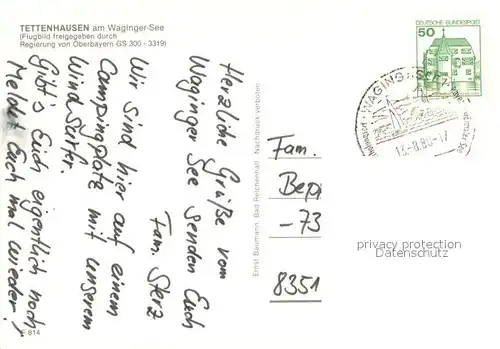 TETTENHAUSEN am Waginger-See
(Flugbild freigegeben durch
Regierung von Oberbayern GS 300 - 3319)
Herzliche Grüße vom
Waginger See senden Euch
Fam. Sterz
Wir sind hier auf einem
Campingplatz mit unserem
Windsurfer.
Gibt's Euch eigentlich noch,
Meldet Euch mal wieder!
F 814
Ernst Baumann, Bad Reichenhall Nachdruck verboten
DEUTSCHE BUNDESPOST
50
WAGING A. SEE
13.-8.80.-17
Fam.
Bepi
-73
8351
privacy protection
Datenschutz